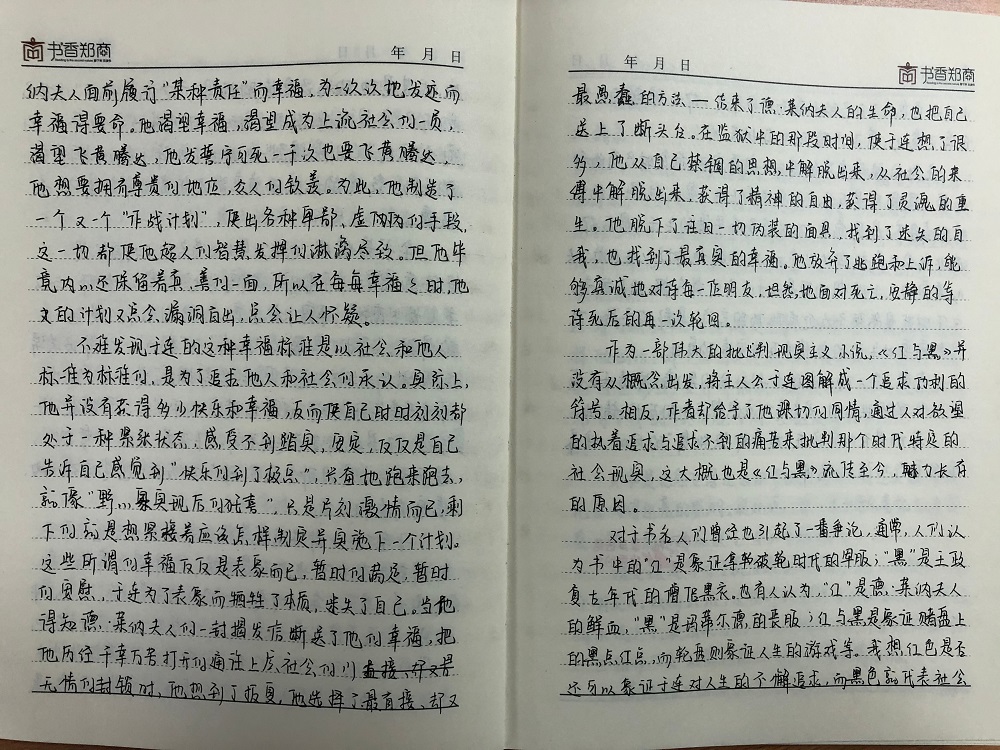 书香郑商
年 月 日
纳夫人面前履行“某种责任”而幸福，为一次次地发迹而
幸福得要命。他渴望幸福，渴望成为上流社会的一员，
渴望飞黄腾达，他发誓宁可死一千次也要飞黄腾达，
他想要拥有尊贵的地位，众人的钦羡。为此，他制造了
一个又一个“作战计划”，使出各种卑鄙、虚伪的手段，
这一切都使他超人的智慧发挥的淋漓尽致。但他毕
竟内心还保留着真、善的一面，所以在每每幸福之时，他
的计划又总会漏洞百出，总会让人怀疑。
不难发现于连的这种幸福标准是以社会和他人
标准为标准的，是为了追求他人和社会的承认。实际上，
他并没有获得多少快乐和幸福，反而使自己时时刻刻都
处于一种紧张状态，感受不到踏实，安定，仅仅是自己
告诉自己感觉到“快乐的到了极点”，只有地跑来跑去，
就像“野心实现后的狂喜”，只是片刻激情而已，剩
下的就是想紧接着应该怎样制定并实施下一个计划。
这些所谓的幸福仅仅是表象而已，暂时的满足，暂时
的安慰，于连为了表象而牺牲了本质，迷失了自己。当他
得知德·莱纳夫人的一封揭发信断送了他的幸福，把
他历经千辛万苦打开的通往上层社会的门
无情的封锁时，他想到了报复，他选择了最直接、却又
年 月 日
书香郑商
最愚蠢的方法——结束了德·莱纳夫人的生命，也把自己
送上了断头台。在监狱中的那段时间，使于连想了很
多，他从自己禁锢的思想中解脱出来，从社会的束
缚中解脱出来，获得了精神的自由，获得了灵魂的重
生。他脱下了往日一切伪装的面具，找到了迷失的自
我，也找到了最真实的幸福。他放弃了逃跑和上诉，能
够真诚地对待每一位朋友，坦然地面对死亡，安静的等
待死后的再一次轮回。
作为一部伟大的批判现实主义小说，《红与黑》并
没有从概念出发，将主人公于连图解成一个追求功利的
符号。相反，作者却给予了他深切的同情，通过人对欲望
的执着追求与追求不到的痛苦来批判那个时代特定的
社会现实，这大概也是《红与黑》流传至今，魅力长存
的原因。
对于书名人们曾经也引起了一番争论，通常，人们认
为书中的“红”是象征拿破轮时代的军服；“黑”是王政
复古年代的僧侣黑衣。也有人认为，“红”是德·莱纳夫人
的鲜血，“黑”是玛蒂尔德的丧服；红与黑是象征赌盘上
的黑点红点，而轮盘则象征人生的游戏等。我想红色是否
还可以象征于连对人生的不懈追求，而黑色就代表社会